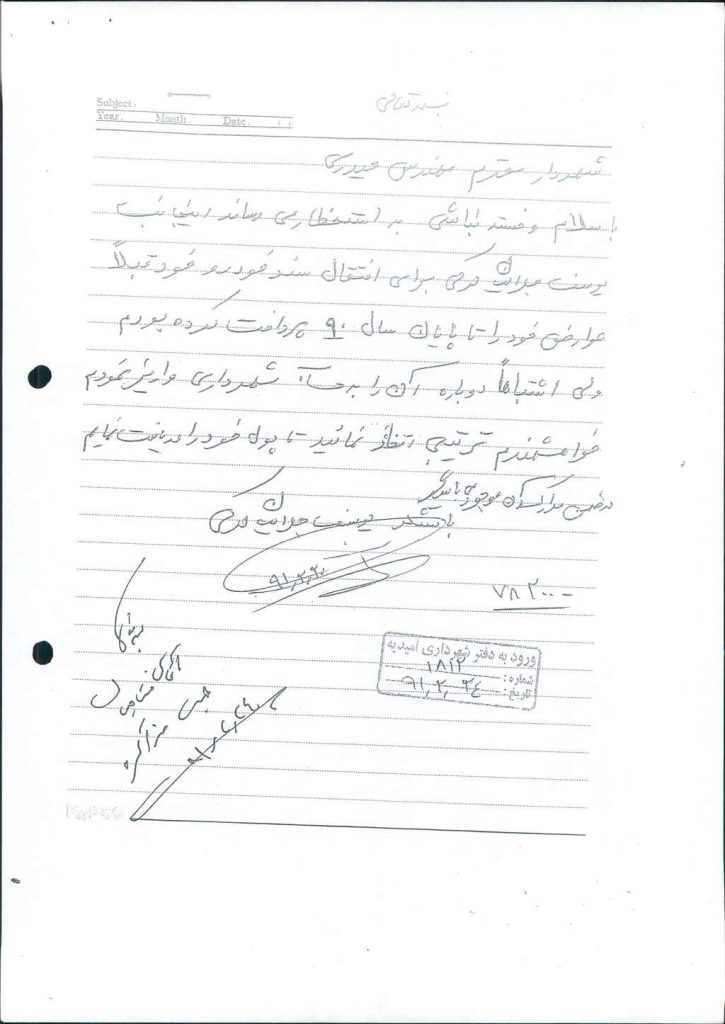 Subject:
Year. Month. Date. ( )
بسمه تعالی
شهردار محترم مهندس حیدری
با سلام و خسته نباشی به استحضار می رساند اینجانب
یوسف فرجی برای انتقال سند خودرو خود قبلاً
عوارض خود را تا پایان سال ۹۰ پرداخت کرده بودم
ولی اشتباهاً دوباره آن را به حساب شهرداری واریز نمودم
خواهشمندم ترتیبی اتخاذ نمائید تا پول خود را دریافت نمایم
در ضمن مدارک آن موجود می باشد
با تشکر یوسف فرجی
۷۸۳۰۰۰
ورود به دفتر شهرداری امیدیه
شماره: ۱۸۱۲
تاریخ: ۹۱٫۲٫۲٤
PAPCO